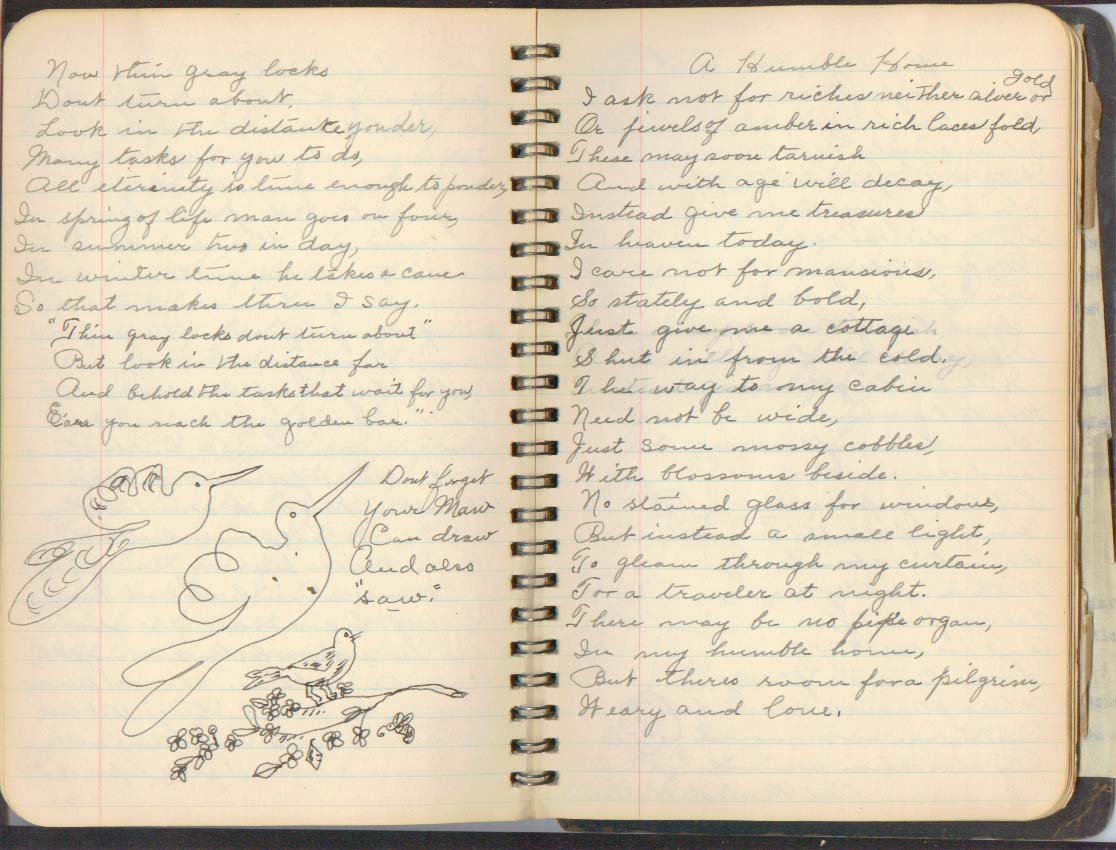 Now thin gray locks
Dont turn about,
Look in the distance yonder,
Many tasks for you to do,
All eternity is time enough to ponder,
In spring of life man goes on four,
In summer two in day,
In winter time he takes a cane
So that makes three I say.
"Thin gray locks dont turn about"
But look in the distance far
And behold the tasks that wait for you,
E'er you reach the golden bar."
Dont forget
Your Maw
Can draw
And also
"saw."
A Humble Home
I ask not for riches neither silver or gold
Or jewels of amber in rich laces fold,
These may soon tarnish
And with age will decay,
Instead give me treasures
In heaven today.
I care not for mansions,
So stately and bold,
Just give me a cottage
Shut in from the cold.
The way to my cabin
Need not be wide,
Just some mossy cobbles,
With blossoms beside.
No stained glass for windows,
But instead a small light,
To gleam through my curtain,
For a traveler at night.
There may be no pipe organ,
In my humble home,
But theres room for a pilgrim,
Weary and lone.